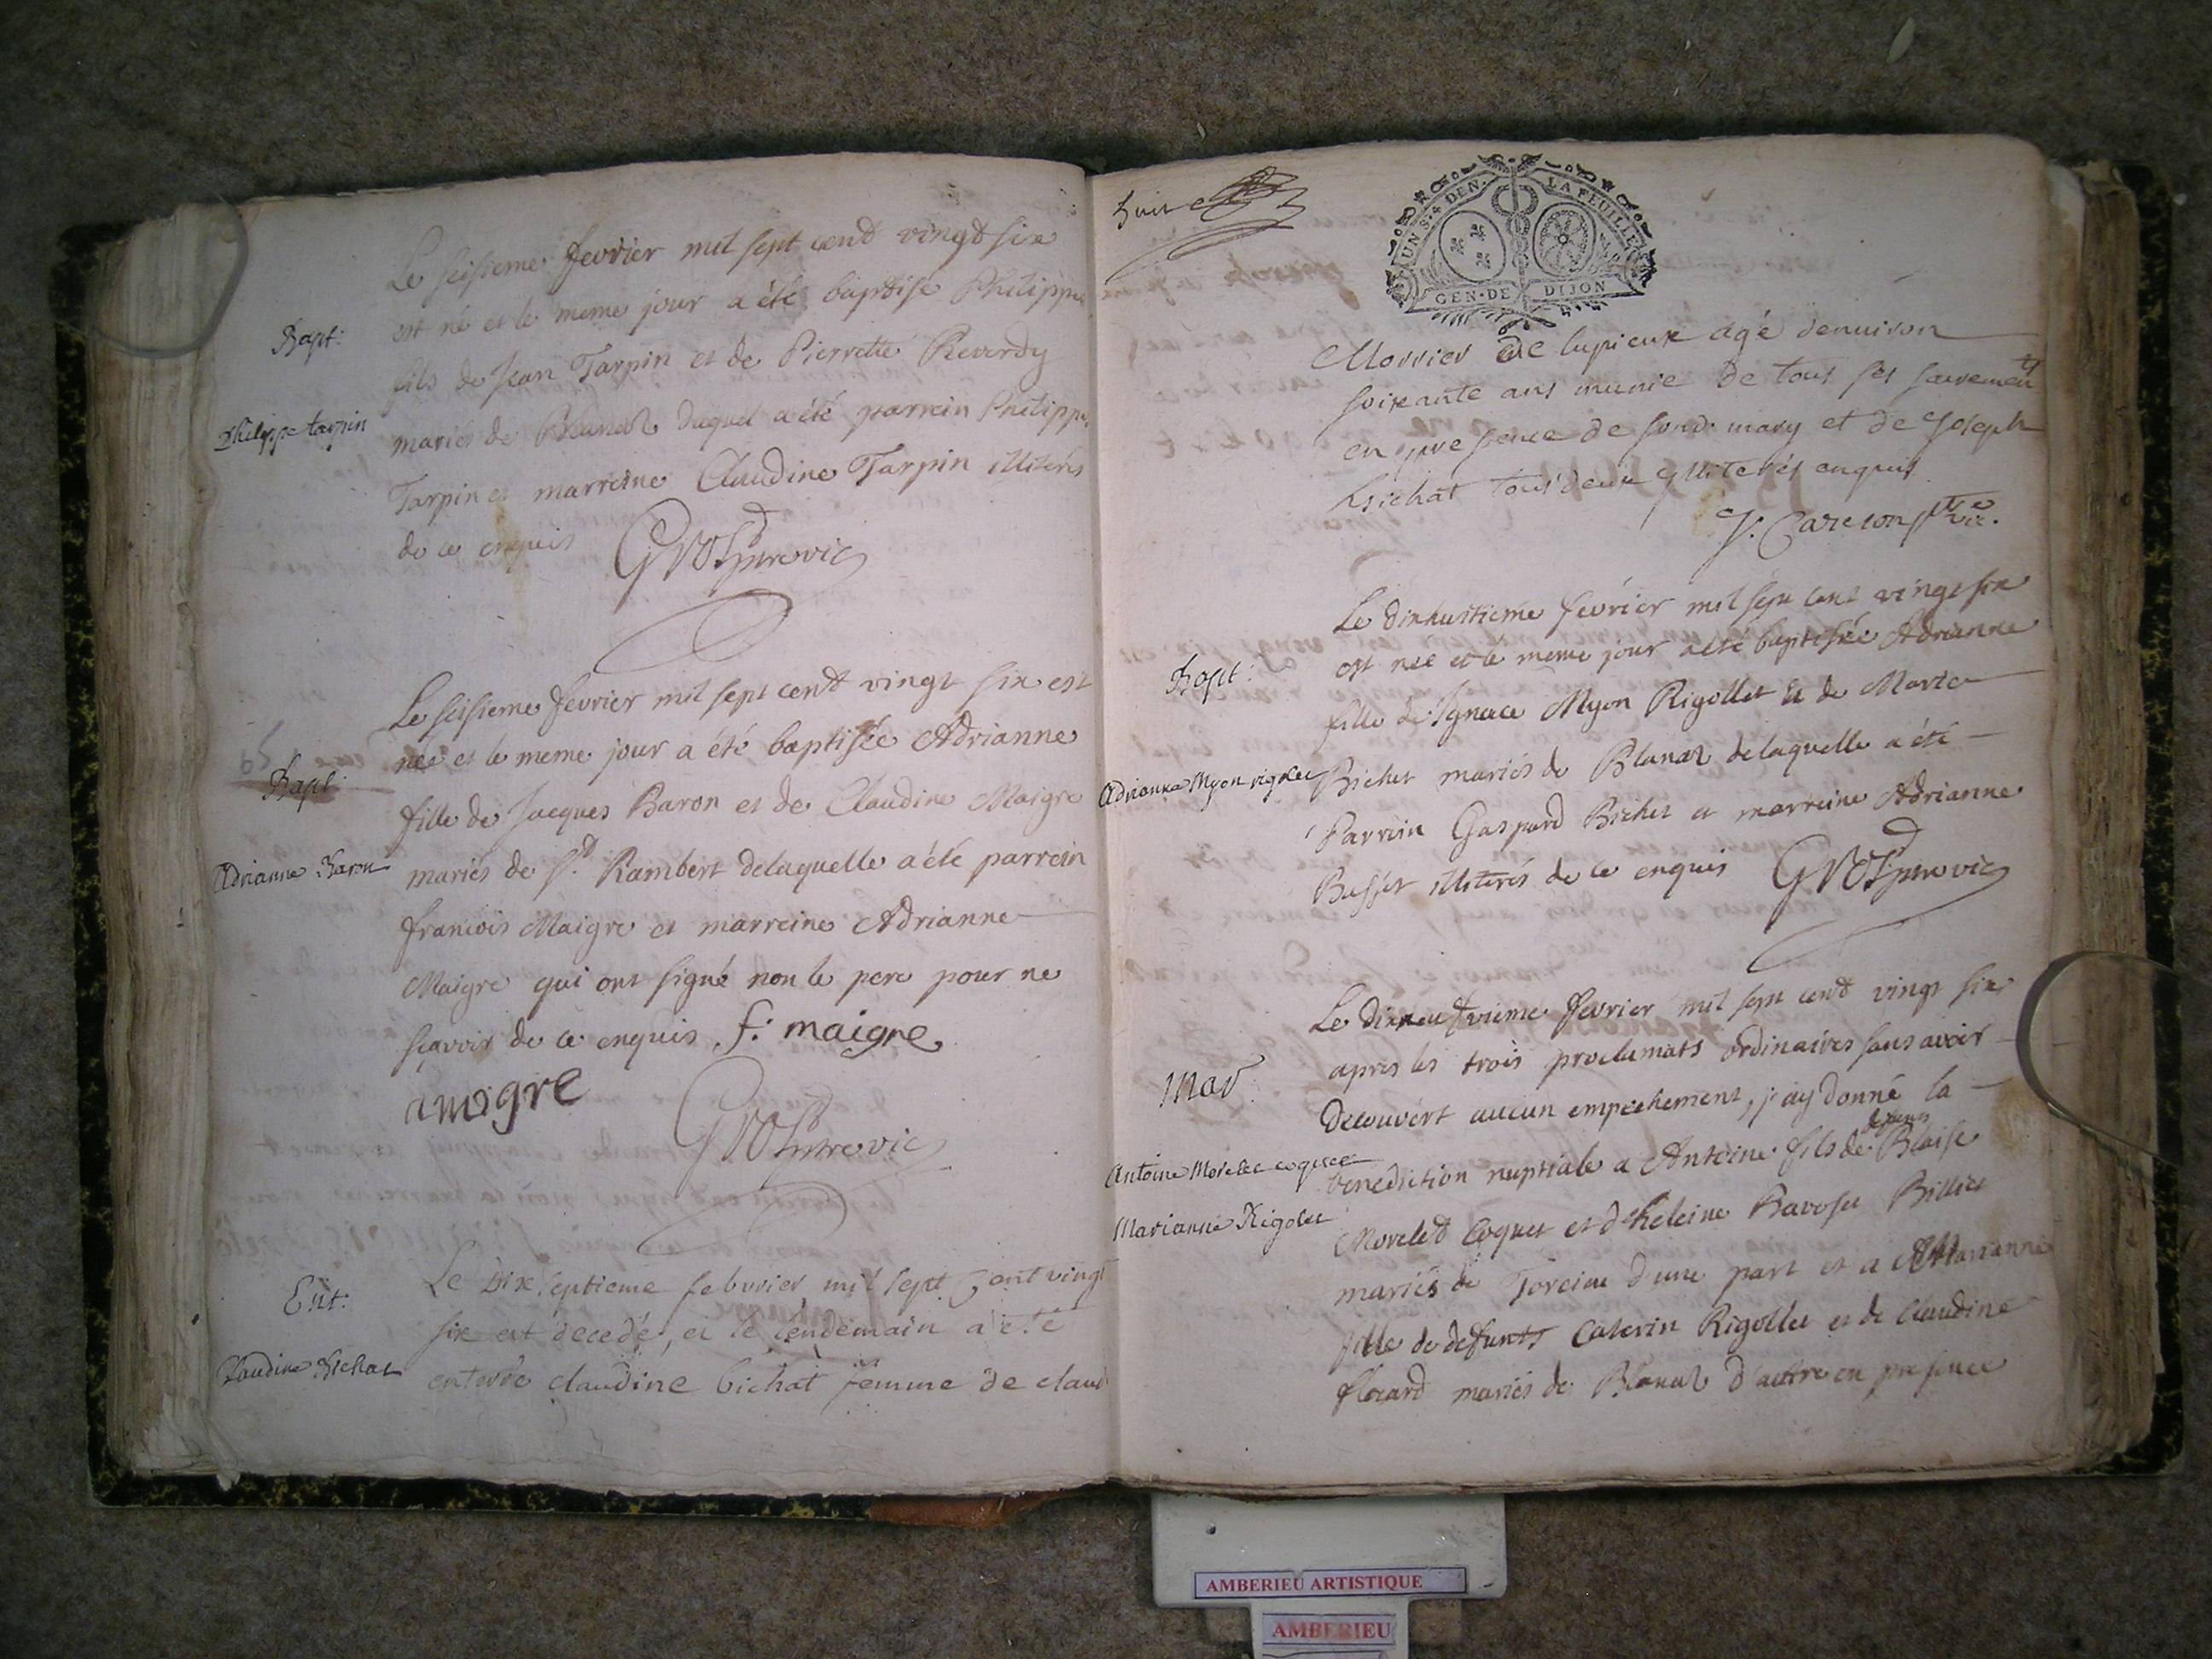 Le seisieme fevrier mil sept cend vingt six
est né et le meme jour a été baptisé Philippe
Bapt:
fils de Jean Tarpin et de Pierrette Reverdy
Philippe tarpin
mariés de Blanaz duquel a été parrein Philippe
Tarpin et marreine Claudine Tarpin illiterés
de ce enquis
Le seisieme fevrier mil sept cend vingt six est
née et le meme jour a été baptisée Adrianne
Bapt:
fille de Jacques Baron et de Claudine Maigre
Adrianne Baron
mariés de St. Rambert delaquelle a été parrein
francois Maigre et marreine Adrianne
Maigre qui ont signé non le pere pour ne
sçavoir de ce enquis f: maigre
a maigre
Ent:
Le Dix septieme febvrier mil sept cent vingt
six est decedé, et le lendemain a eté
Claudine Bichat
enterré claudine bichat femme de claud
huit
UN S. 4 DEN. LA FEUILLE
GEN. DE DIJON
Morrier de lupieux agé denuiron
soixante ans munie de tous ses sacrements
en presence de sond. mary et de Joseph
bichat tous deux illiterés enquis
J. Carcson ptre vic.
Le dixhuitieme février mil sept cent vingt six
est née et le meme jour a été baptisée Adrianne
Bapt:
fille de Ignace Myon Rigollet et de Marie
Adrianne Myon rigolet
Bichet mariés de Blanaz delaquelle a été
Parrein Gaspard Bichet et marreine Adrianne
Busset illiterés de ce enquis
Le dixneufvieme fevrier mil sept cend vingt six
apres les trois proclamats ordinaires sans avoir
Mar:
Decouvert aucun empechement, j'ay donné la
defunts
Antoine Morelet coquet
benediction nuptiale a Antoine fils de Blaise
Marianne Rigolet
Moreled Coquet et d'heleine Billiet
mariés de Torcieu d'une part et a Marianne
fille de defunts Caterin Rigollet et de Claudine
florard mariés de Blanaz d'autre en presence
AMBERIEU ARTISTIQUE
AMBERIEU